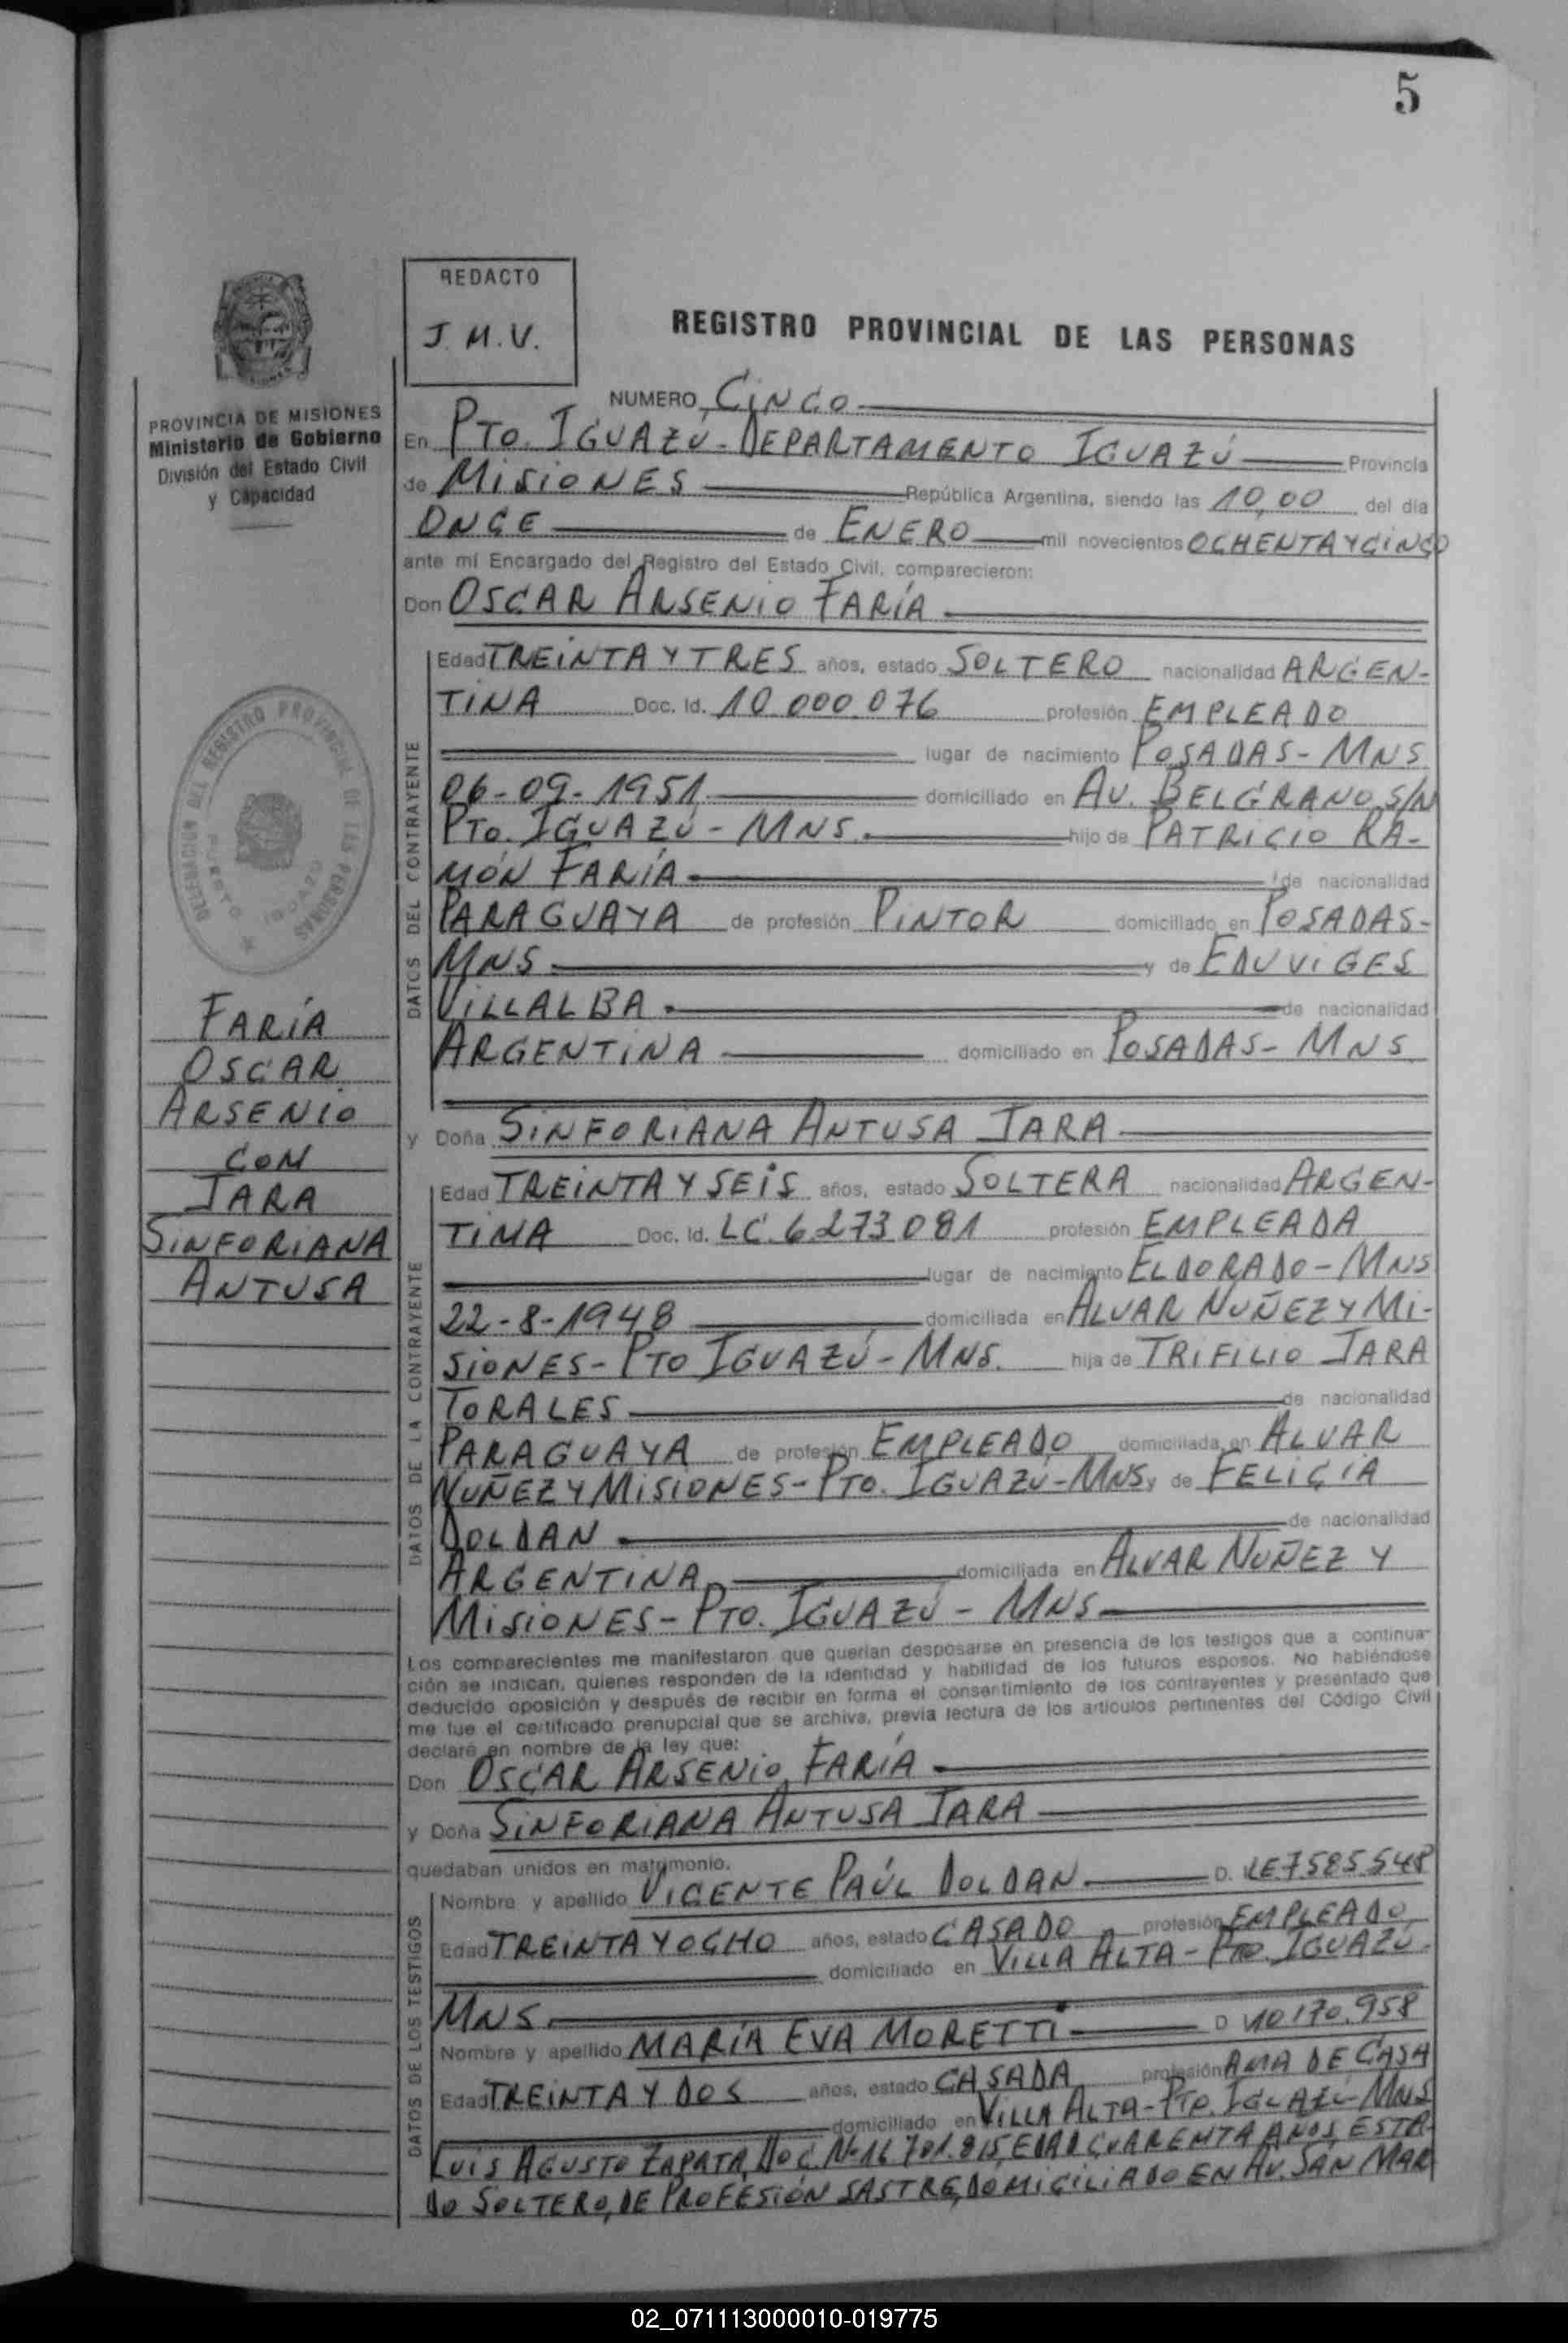 5
REDACTO
J. M. V.
REGISTRO PROVINCIAL DE LAS PERSONAS
PROVINCIA DE MISIONES
Ministerio de Gobierno
División del Estado Civil
y Capacidad
DELEGACION DEL REGISTRO PROVINCIAL DE LAS PERSONAS
PUERTO IGUAZU
FARÍA
OSCAR
ARSENIO
CON
JARA
SINFORIANA
ANTUSA
NUMERO CINCO
En PTO. IGUAZÚ - DEPARTAMENTO IGUAZÚ Provincia
de MISIONES República Argentina, siendo las 10,00 del día
ONCE de ENERO mil novecientos OCHENTA Y CINCO
ante mí Encargado del Registro del Estado Civil, comparecieron:
Don OSCAR ARSENIO FARÍA
DATOS DEL CONTRAYENTE
Edad TREINTA Y TRES años, estado SOLTERO nacionalidad ARGEN-
TINA Doc. Id. 10.000.076 profesión EMPLEADO
lugar de nacimiento POSADAS - MNS
06-09-1951 domiciliado en AV. BELGRANO S/N
PTO. IGUAZÚ - MNS. hijo de PATRICIO RA-
MÓN FARÍA de nacionalidad
PARAGUAYA de profesión PINTOR domiciliado en POSADAS-
MNS y de EDUVIGES
VILLALBA de nacionalidad
ARGENTINA domiciliado en POSADAS - MNS
y Doña SINFORIANA ANTUSA JARA
DATOS DE LA CONTRAYENTE
Edad TREINTA Y SEIS años, estado SOLTERA nacionalidad ARGEN-
TINA Doc. Id. LC. 6273081 profesión EMPLEADA
lugar de nacimiento ELDORADO - MNS
22-8-1948 domiciliada en ALVAR NUÑEZ Y MI-
SIONES - PTO IGUAZÚ - MNS. hija de TRIFILIO JARA
TORALES de nacionalidad
PARAGUAYA de profesión EMPLEADO domiciliada en ALVAR
NUÑEZ Y MISIONES - PTO. IGUAZÚ - MNS y de FELICIA
DOLDAN de nacionalidad
ARGENTINA domiciliada en ALVAR NUÑEZ Y
MISIONES - PTO. IGUAZÚ - MNS
Los comparecientes me manifestaron que querían desposarse en presencia de los testigos que a continua-
ción se indican, quienes responden de la identidad y habilidad de los futuros esposos. No habiéndose
deducido oposición y después de recibir en forma el consentimiento de los contrayentes y presentado que
me fue el certificado prenupcial que se archiva, previa lectura de los artículos pertinentes del Código Civil
declaré en nombre de la ley que:
Don OSCAR ARSENIO FARÍA
y Doña SINFORIANA ANTUSA JARA
quedaban unidos en matrimonio.
DATOS DE LOS TESTIGOS
Nombre y apellido VICENTE PAÚL DOLDAN D. LE 7585548
Edad TREINTA Y OCHO años, estado CASADO profesión EMPLEADO
domiciliado en VILLA ALTA - PTO. IGUAZÚ-
MNS
Nombre y apellido MARÍA EVA MORETTI D 10.170.958
Edad TREINTA Y DOS años, estado CASADA profesión AMA DE CASA
domiciliado en VILLA ALTA - PTO. IGUAZÚ - MNS
LUIS AGUSTO ZAPATA, DOC. Nº 16.701.815, EDAD CUARENTA AÑOS, ESTA-
DO SOLTERO, DE PROFESIÓN SASTRE, DOMICILIADO EN AV. SAN MAR
02_071113000010-019775